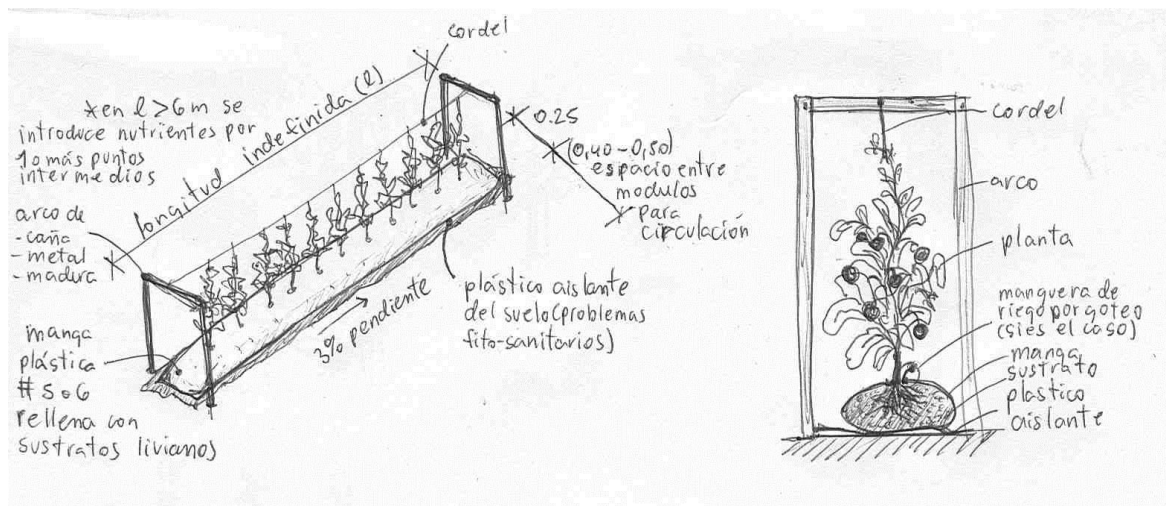 cordel
*en l>6m se
introduce nutrientes por
1 o más puntos
intermedios
longitud indefinida (l)
0.25
(0,40-0,50)
espacio entre
modulos
para
circulación
arco de
-caña
-metal
-madera
manga
plástica
#5 o 6
rellena con
sustratos livianos
3% pendiente
plástico aislante
del suelo (problemas
fito-sanitarios)
cordel
arco
planta
manguera de
riego por goteo
(si es el caso)
manga
sustrato
plastico
aislante